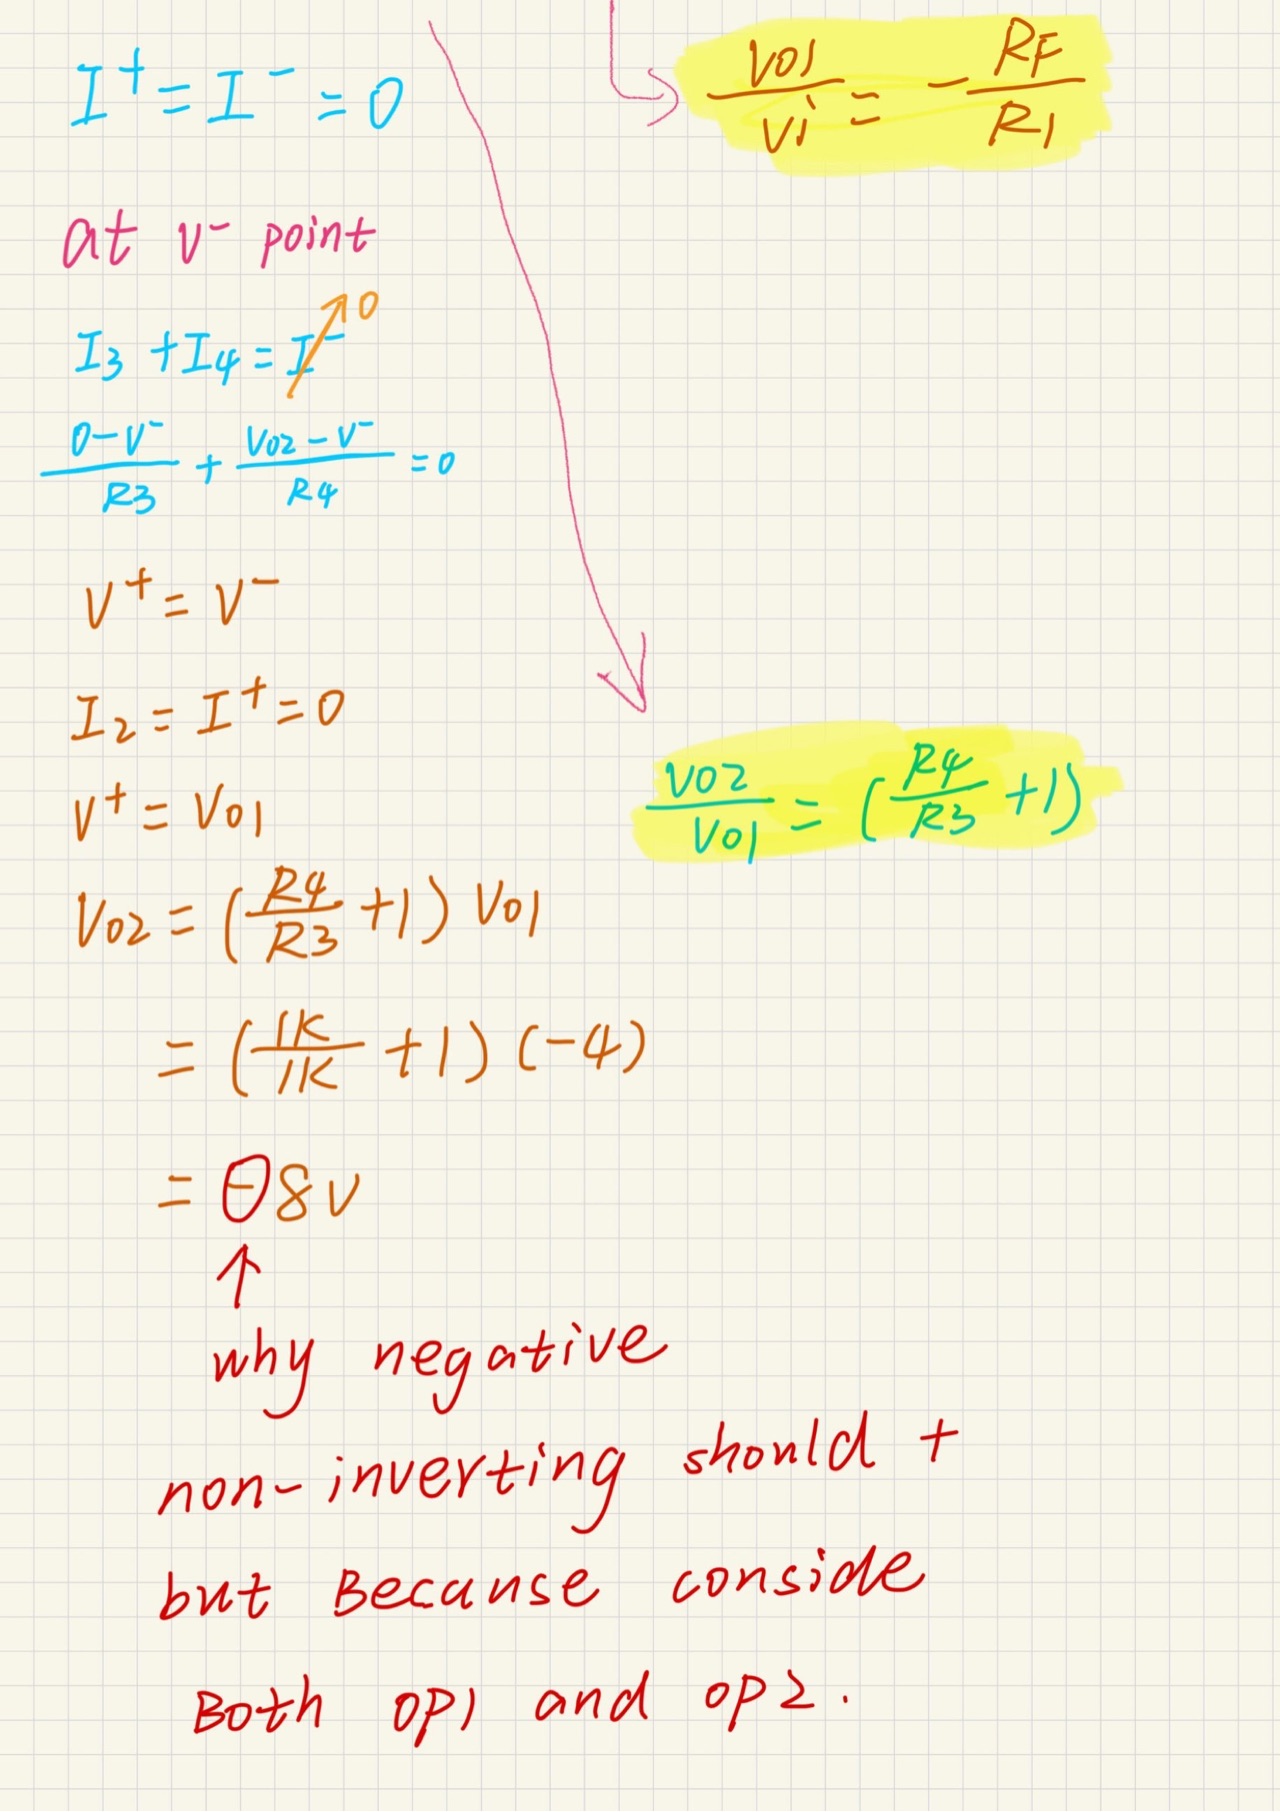 I⁺ = I⁻ = 0
VO1/Vi = - RF/R1
at V⁻ point
I3 + I4 = I⁻ 0
(0 - V⁻)/R3 + (VO2 - V⁻)/R4 = 0
V⁺ = V⁻
I2 = I⁺ = 0
V⁺ = VO1
VO2/VO1 = (R4/R3 + 1)
VO2 = (R4/R3 + 1) VO1
= (1K/1K + 1) (-4)
= -8V
why negative
non-inverting should +
but Because conside
Both OP1 and OP2.